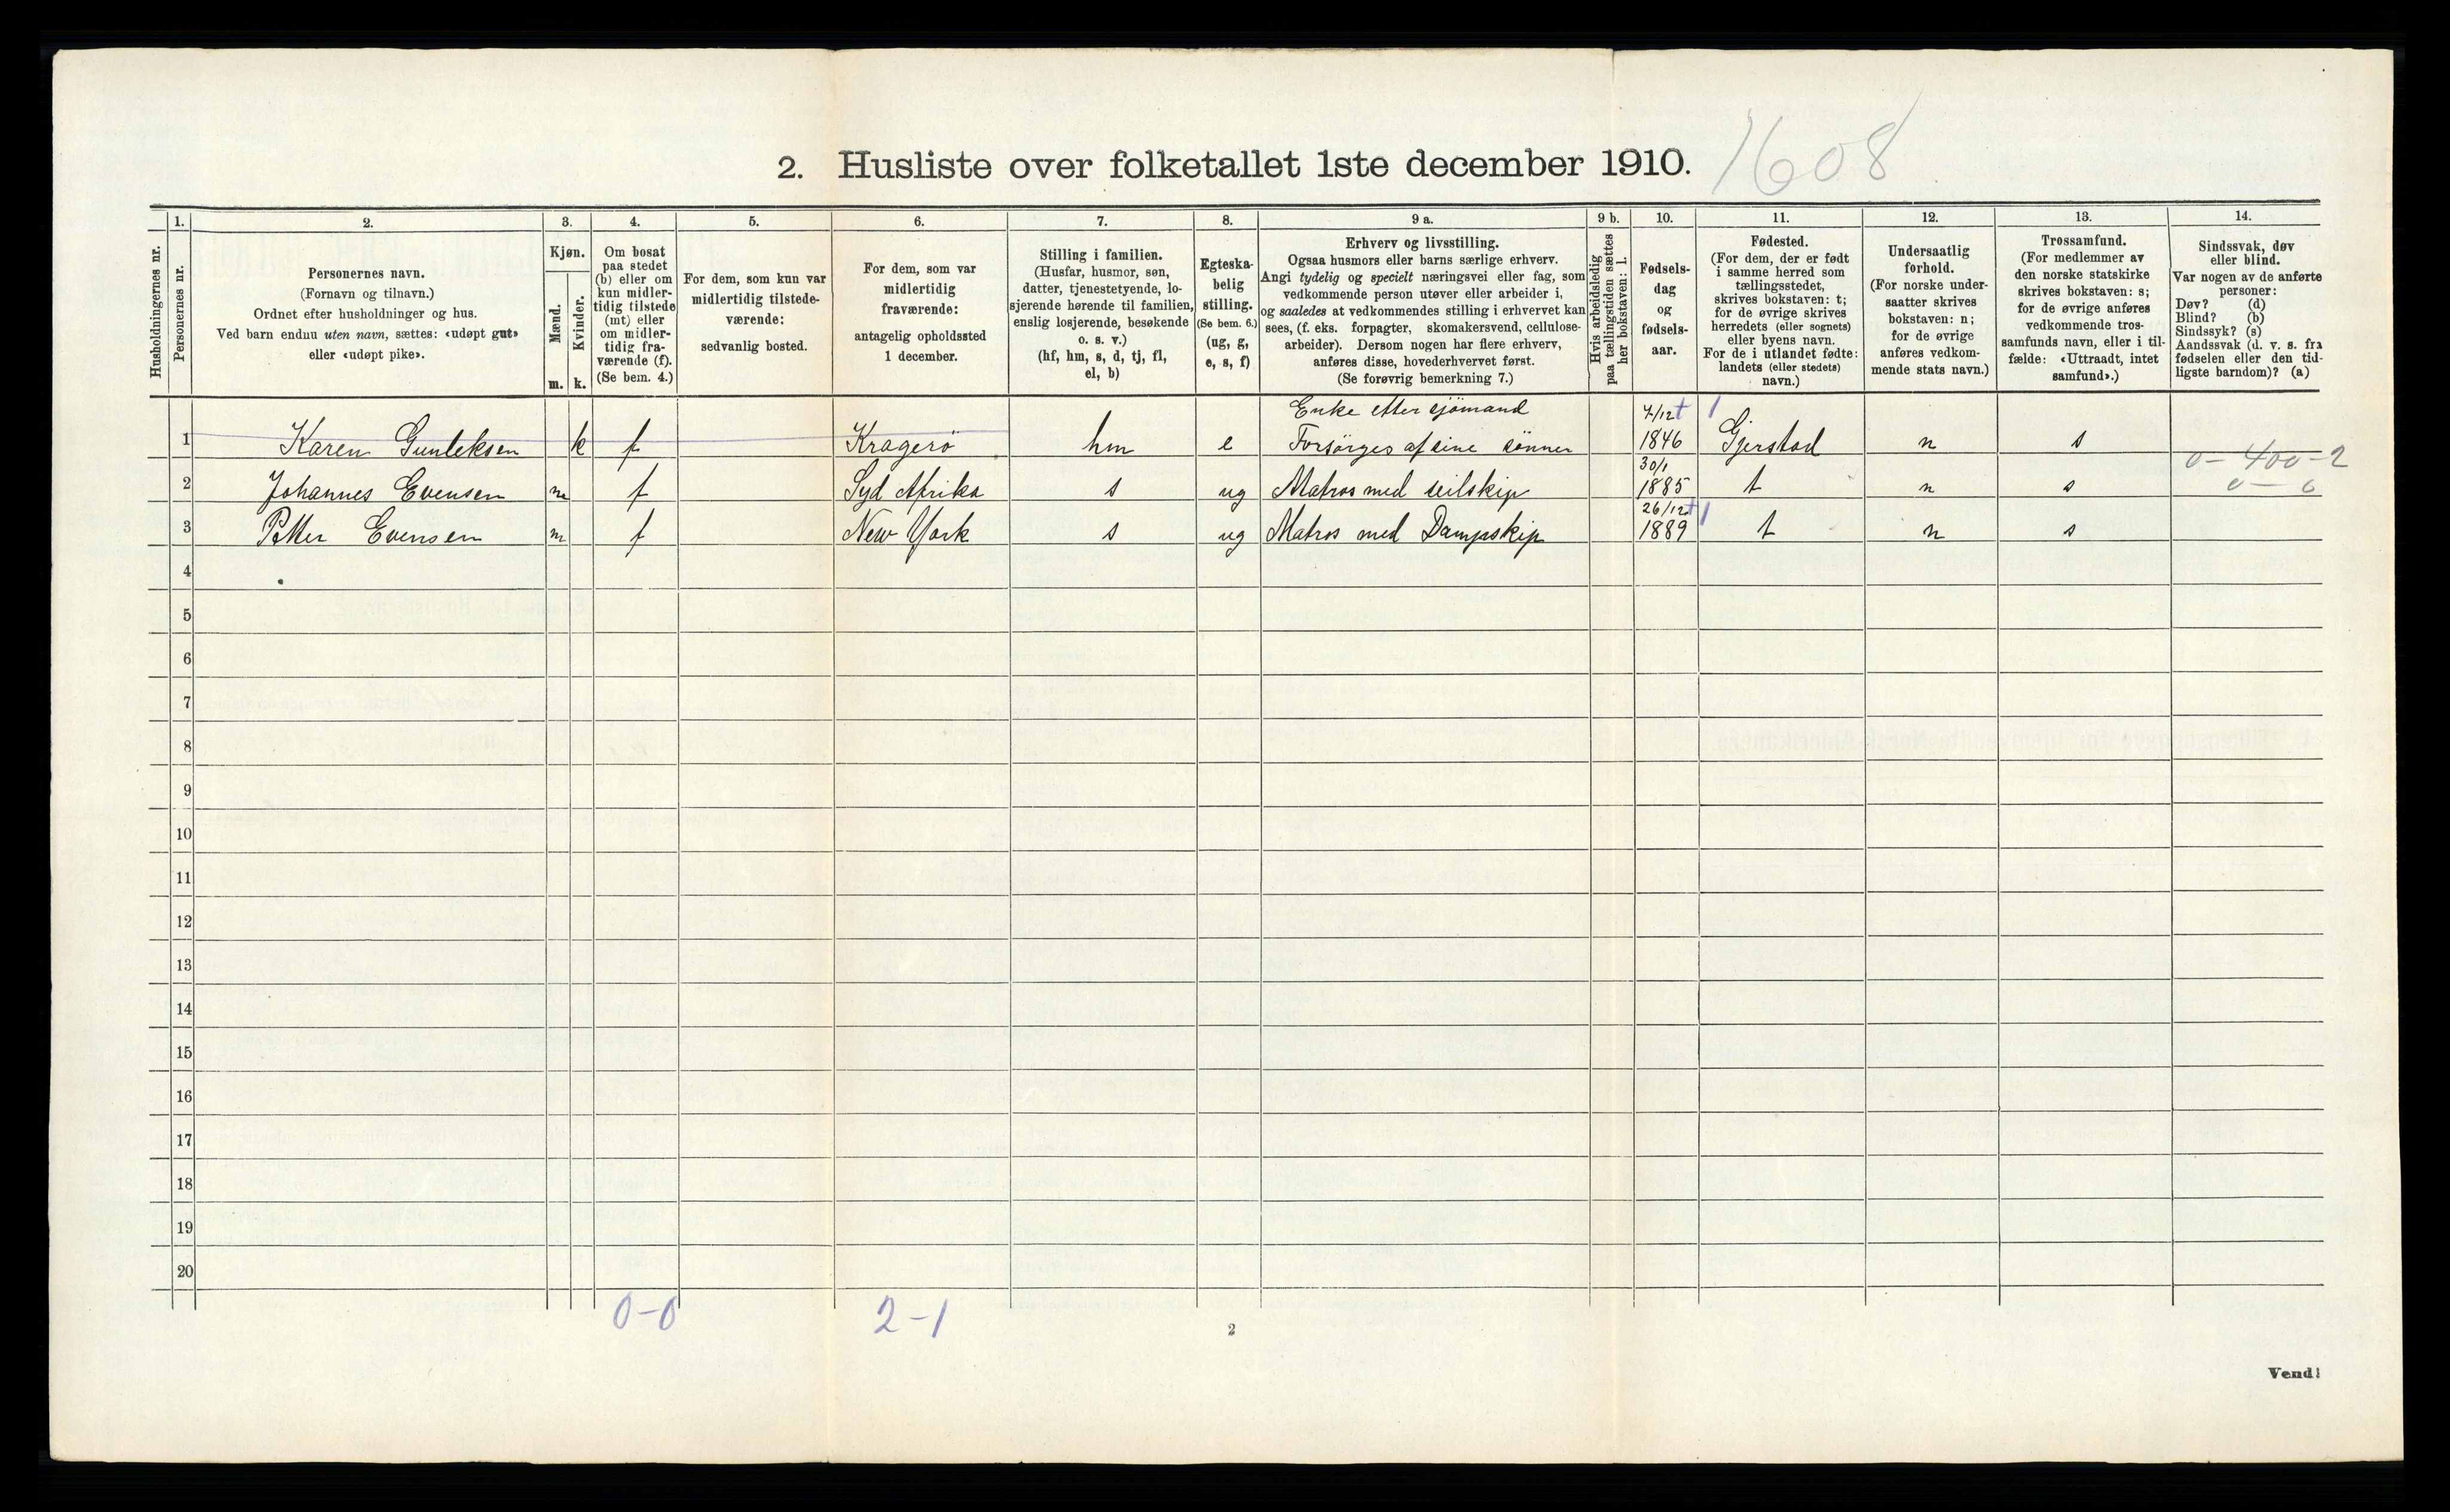 2. Husliste over folketallet 1ste december 1910.
1608
Husholdningernes nr.
1.
Personernes nr.
2.
Personernes navn.
(Fornavn og tilnavn.)
Ordnet efter husholdninger og hus.
Ved barn endnu uten navn, sættes: «udøpt gut»
eller «udøpt pike».
3.
Kjøn.
Mænd.
m.
Kvinder.
k.
4.
Om bosat
paa stedet
(b) eller om
kun midler-
tidig tilstede
(mt) eller
om midler-
tidig fra-
værende (f).
(Se bem. 4.)
5.
For dem, som kun var
midlertidig tilstede-
værende:
sedvanlig bosted.
6.
For dem, som var
midlertidig
fraværende:
antagelig opholdssted
1 december.
7.
Stilling i familien.
(Husfar, husmor, søn,
datter, tjenestetyende, lo-
sjerende hørende til familien,
enslig losjerende, besøkende
o. s. v.)
(hf, hm, s, d, tj, fl,
el, b)
8.
Egteska-
belig
stilling.
(Se bem. 6.)
(ug, g,
e, s, f)
9 a.
Erhverv og livsstilling.
Ogsaa husmors eller barns særlige erhverv.
Angi tydelig og specielt næringsvei eller fag, som
vedkommende person utøver eller arbeider i,
og saaledes at vedkommendes stilling i erhvervet kan
sees, (f. eks. forpagter, skomakersvend, cellulose-
arbeider). Dersom nogen har flere erhverv,
anføres disse, hovederhvervet først.
(Se forøvrig bemerkning 7.)
9 b.
Hvis arbeidsledig
paa tællingstiden sættes
her bokstaven: l.
10.
Fødsels-
dag
og
fødsels-
aar.
11.
Fødested.
(For dem, der er født
i samme herred som
tællingsstedet,
skrives bokstaven: t;
for de øvrige skrives
herredets (eller sognets)
eller byens navn.
For de i utlandet fødte:
landets (eller stedets)
navn.)
12.
Undersaatlig
forhold.
(For norske under-
saatter skrives
bokstaven: n;
for de øvrige
anføres vedkom-
mende stats navn.)
13.
Trossamfund.
(For medlemmer av
den norske statskirke
skrives bokstaven: s;
for de øvrige anføres
vedkommende tros-
samfunds navn, eller i til-
fælde: «Uttraadt, intet
samfund».)
14.
Sindssvak, døv
eller blind.
Var nogen av de anførte
personer:
Døv? (d)
Blind? (b)
Sindssyk? (s)
Aandssvak (d. v. s. fra
fødselen eller den tid-
ligste barndom)? (a)
Enke etter sjömand 7/12 † 1
1 Karen Gunleksen k f Kragerö hm e Forsörges af sine sönner 1846 Gjerstad n s
0 - 400 - 2
30/1
2 Johannes Evensen m f Syd Afrika s ug Matros med seilskip 1885 t n s 0 - 0
26/12 † 1
3 Petter Evensen m f New York s ug Matros med Dampskip 1889 t n s
4
5
6
7
8
9
10
11
12
13
14
15
16
17
18
19
20
0-0 2-1
2
Vend!